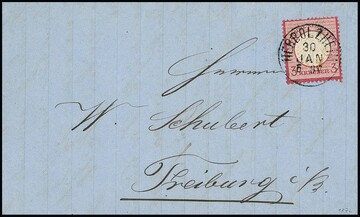 30
JAN
3 3
Herrn
W. Schubert
Freiburg i/B.